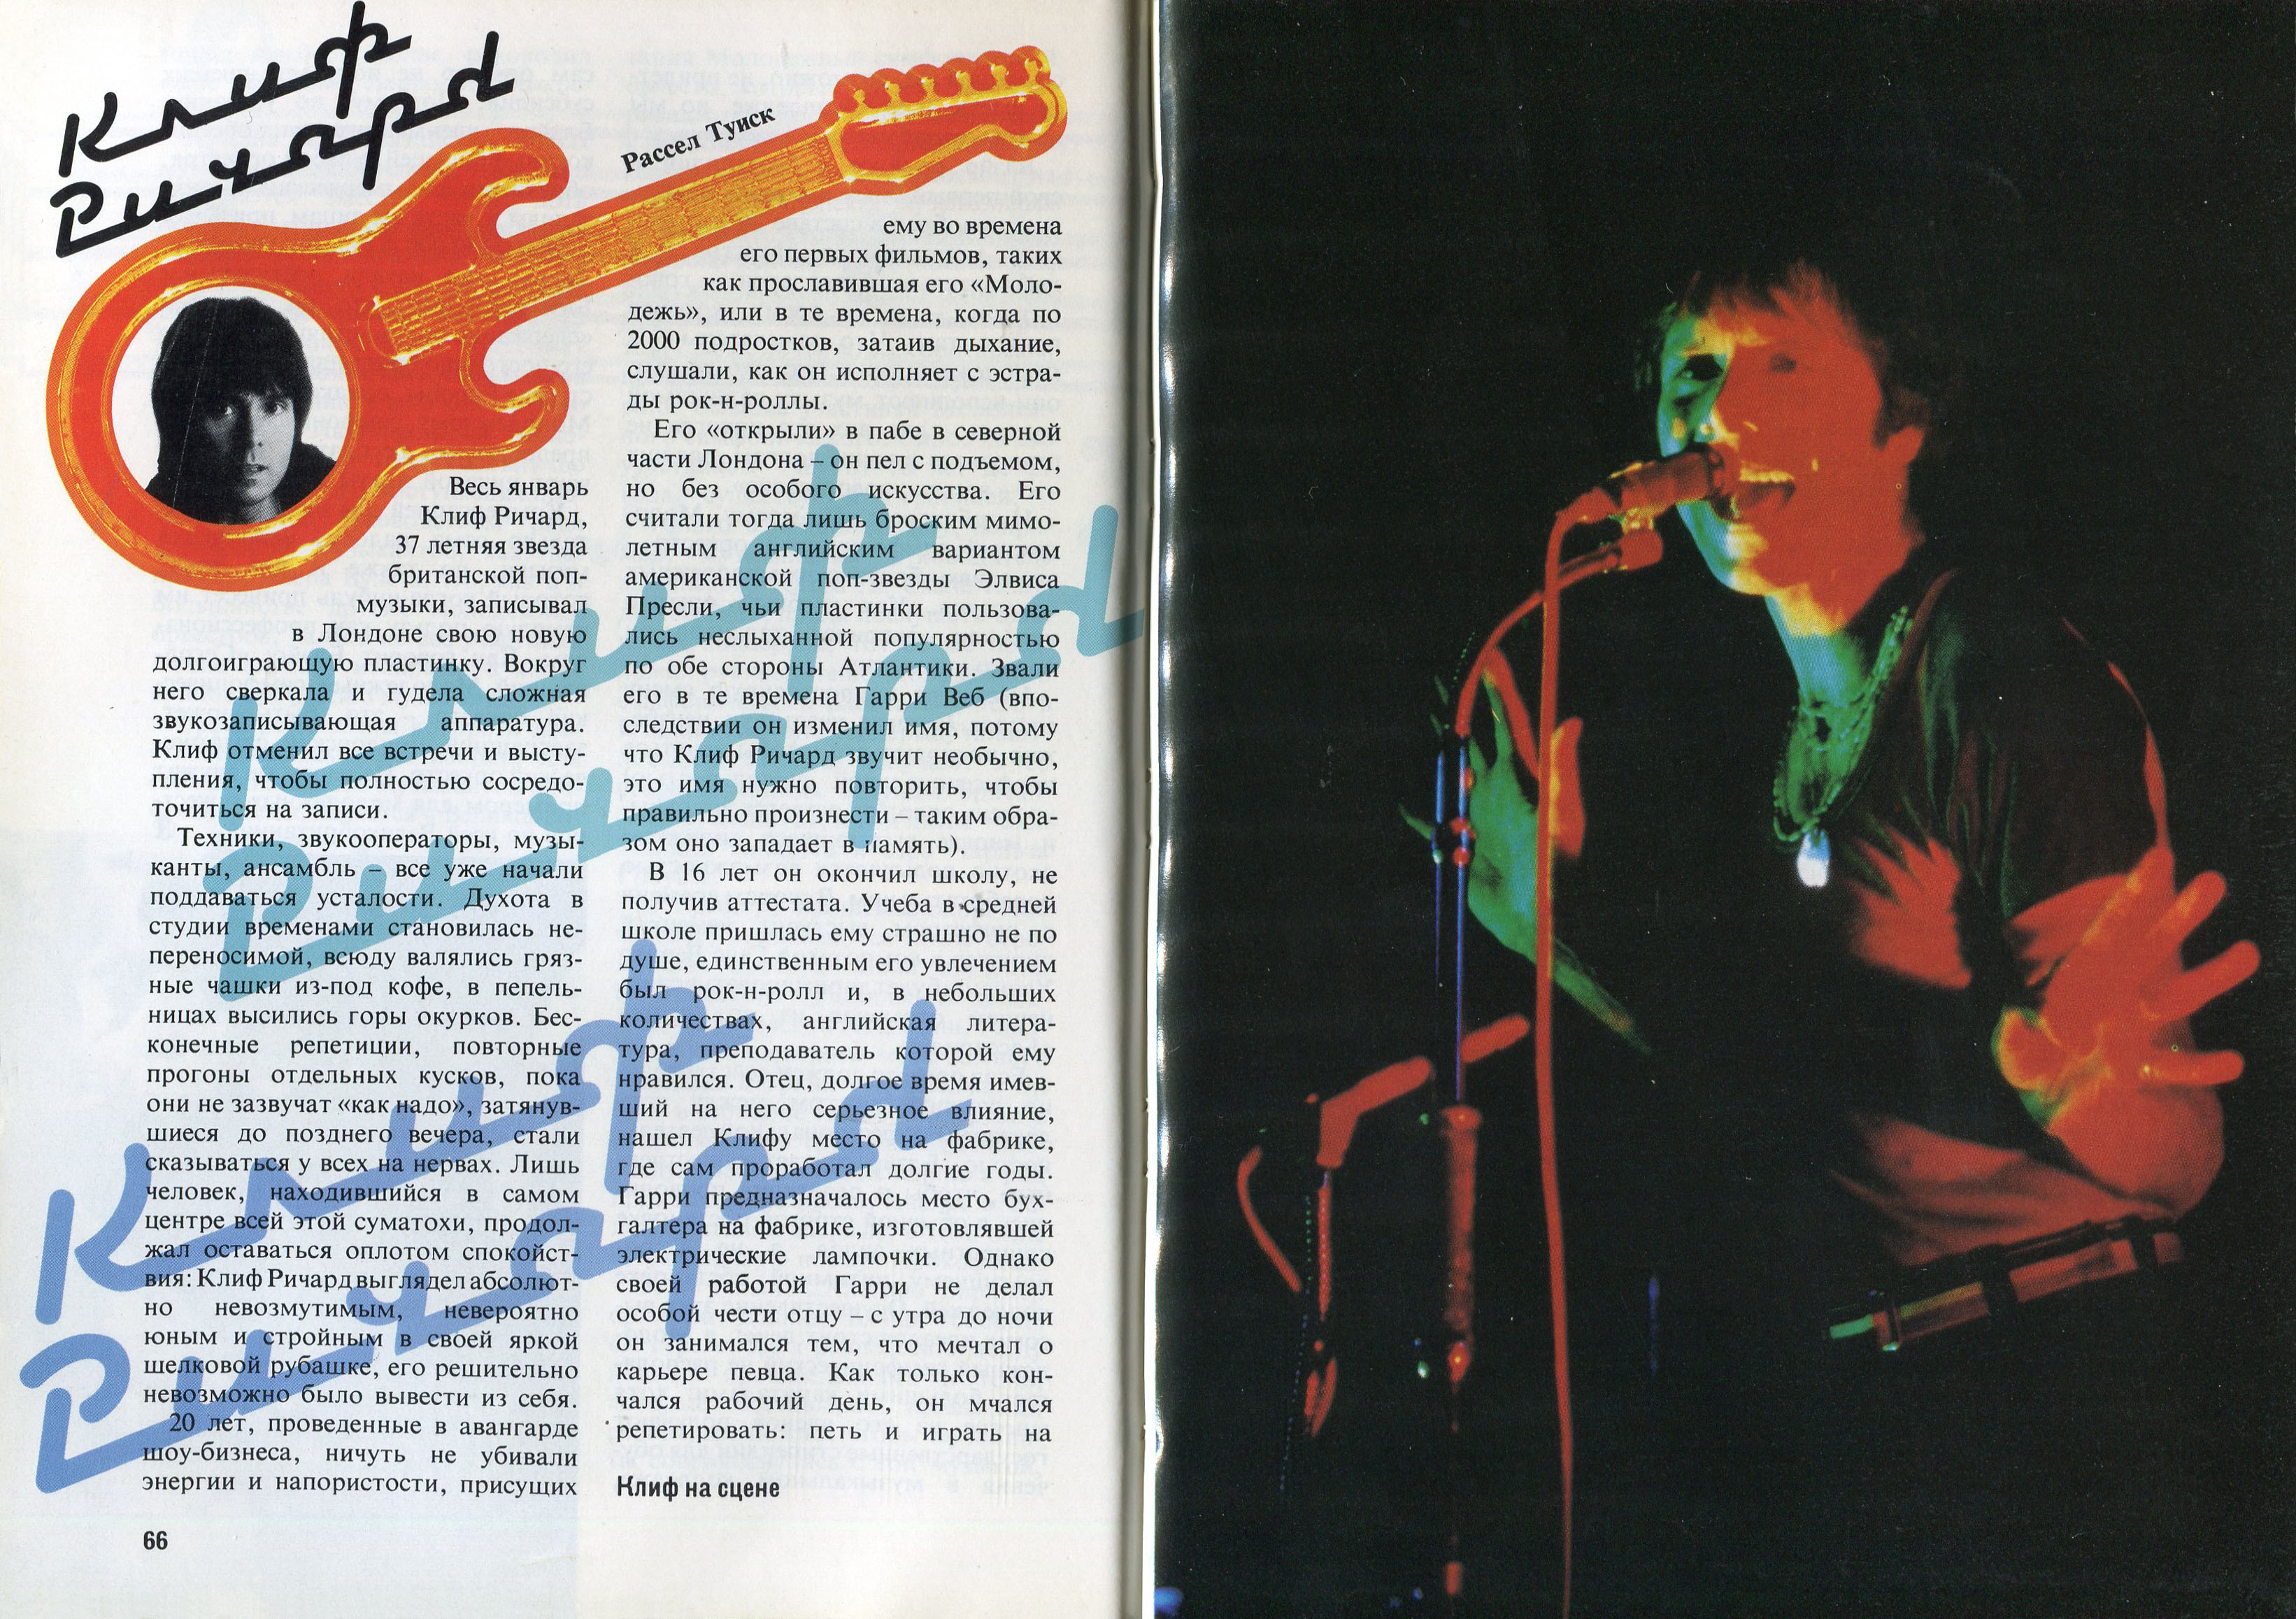 Клиф
Ричард
Рассел Туиск
Весь январь
Клиф Ричард,
37 летняя звезда
британской поп-
музыки, записывал
в Лондоне свою новую
долгоиграющую пластинку. Вокруг
него сверкала и гудела сложная
звукозаписывающая аппаратура.
Клиф отменил все встречи и высту-
пления, чтобы полностью сосредо-
точиться на записи.
Техники, звукооператоры, музы-
канты, ансамбль – все уже начали
поддаваться усталости. Духота в
студии временами становилась не-
переносимой, всюду валялись гряз-
ные чашки из-под кофе, в пепель-
ницах высились горы окурков. Бес-
конечные репетиции, повторные
прогоны отдельных кусков, пока
они не зазвучат «как надо», затянув-
шиеся до позднего вечера, стали
сказываться у всех на нервах. Лишь
человек, находившийся в самом
центре всей этой суматохи, продол-
жал оставаться оплотом спокойст-
вия: Клиф Ричард выглядел абсолют-
но невозмутимым, невероятно
юным и стройным в своей яркой
шелковой рубашке, его решительно
невозможно было вывести из себя.
20 лет, проведенные в авангарде
шоу-бизнеса, ничуть не убивали
энергии и напористости, присущих
ему во времена
его первых фильмов, таких
как прославившая его «Моло-
дежь», или в те времена, когда по
2000 подростков, затаив дыхание,
слушали, как он исполняет с эстра-
ды рок-н-роллы.
Его «открыли» в пабе в северной
части Лондона – он пел с подъемом,
но без особого искусства. Его
считали тогда лишь броским мимо-
летным английским вариантом
американской поп-звезды Элвиса
Пресли, чьи пластинки пользова-
лись неслыханной популярностью
по обе стороны Атлантики. Звали
его в те времена Гарри Веб (впо-
следствии он изменил имя, потому
что Клиф Ричард звучит необычно,
это имя нужно повторить, чтобы
правильно произнести – таким обра-
зом оно западает в память).
В 16 лет он окончил школу, не
получив аттестата. Учеба в средней
школе пришлась ему страшно не по
душе, единственным его увлечением
был рок-н-ролл и, в небольших
количествах, английская литера-
тура, преподаватель которой ему
нравился. Отец, долгое время имев-
ший на него серьезное влияние,
нашел Клифу место на фабрике,
где сам проработал долгие годы.
Гарри предназначалось место бух-
галтера на фабрике, изготовлявшей
электрические лампочки. Однако
своей работой Гарри не делал
особой чести отцу – с утра до ночи
он занимался тем, что мечтал о
карьере певца. Как только кон-
чался рабочий день, он мчался
репетировать: петь и играть на
Клиф на сцене
66
Клиф
Ричард
Клиф
Ричард